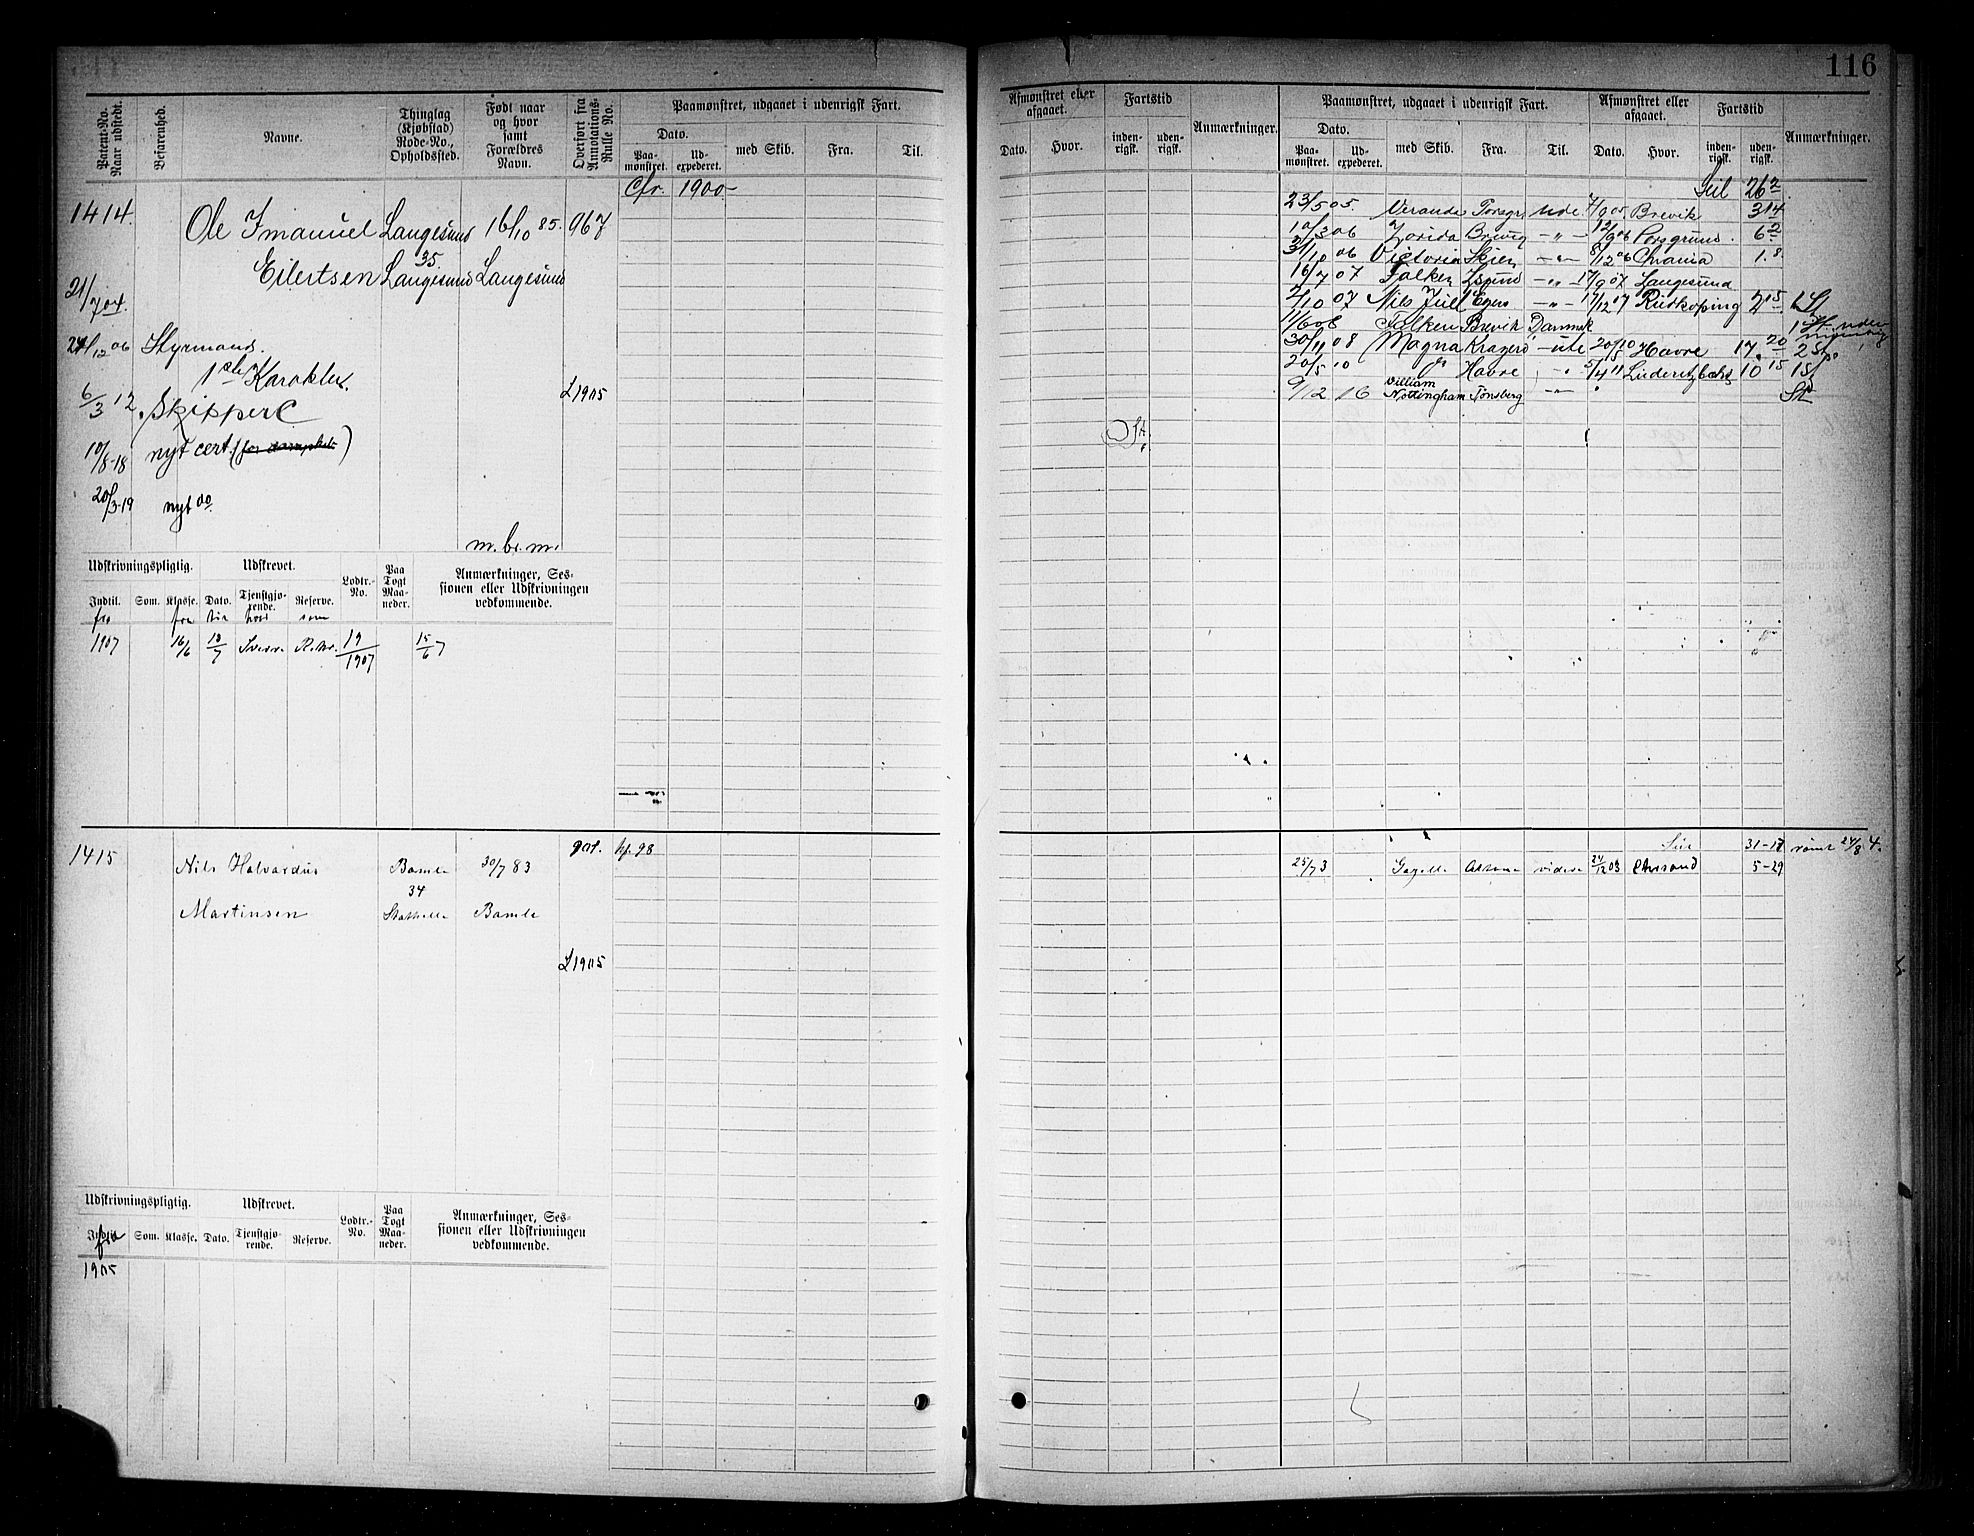 116
Patent-No. Naar udstedt.
Befarenhed.
Navne.
Thinglag (Kjøbstad) Rode-No., Opholdssted.
Født naar og hvor samt Forældres Navn.
Overført fra Annotations-Rulle No.
Paamønstret, udgaaet i udenrigsk Fart.
Dato.
Paamønstret. Udexpederet. med Skib. Fra. Til.
Afmønstret eller afgaaet.
Dato. Hvor.
Fartstid
indenrigsk. udenrigsk.
Anmærkninger.
Paamønstret, udgaaet i udenrigsk Fart.
Dato.
Paamønstret. Udexpederet. med Skib. Fra. Til.
Afmønstret eller afgaaet.
Dato. Hvor.
Fartstid
indenrigsk. udenrigsk.
Anmærkninger.
Cfr. 1900-
1414. Ole Imanuel Langesund 16/10 85. 967
35
Eilertsen Langesund Langesund
21/7 04.
24/12 06 Styrmand.
1ste Karakter.
L1905
6/3 12. Skipper C
10/8-18 nyt cert. (for dampskib)
20/3-19 nyt do.
m. br. m.
Seil 26
23/5 05. Ude. 7/9 05 Brevik 3 14
10/3 06 Zorida Brevig -"- 12/9 06 Porsgrund. 6
31/10 06 Victoria Skien -"- 8/12 06 Chrania 1. 8.
16/7 07 Falken -"- 17/9 07 Langesund
2/10 07 Nils Juel -"- 17/12 07 Rudkøping 2 15
11/6 08 Falken Brevik Danmark
30/11 08 Magna Kragerø -ute 20/5 10 Havre 17. 20 2 St.
20/5 10 do Havre 5/4 11 10 15 1 St
9/12 16 William Nottingham Tønsberg -"- St
Udskrivningspligtig. Udskrevet.
Indtil. Som. Klasse. Dato. Tjenstgjørende. Reserve.
Lodtr.-No.
Paa Togt Maaneder.
Anmærkninger, Sessionen eller Udskrivningen vedkommende.
fra fra
1907 16/6 10/7 19/1907 15/6 7
1415 901. hp. 98
Nils Halvardus Bamle 30/7 83
34
Martinsen Stathelle Bamle
L1905
31-17 rømt 24/8 4.
25/7 3 Gazelle videre 24/12 03 Chrsand 5-29
Udskrivningspligtig. Udskrevet.
Indtil. Som. Klasse. Dato. Tjenstgjørende. Reserve.
Lodtr.-No.
Paa Togt Maaneder.
Anmærkninger, Sessionen eller Udskrivningen vedkommende.
fra
1905